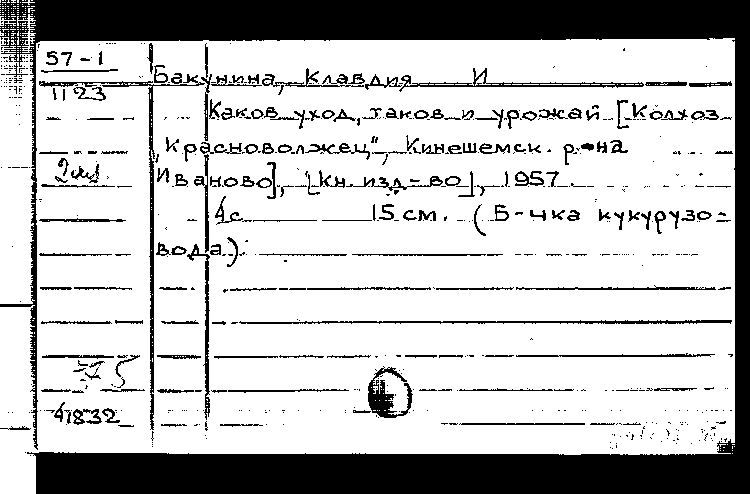 57-1
Бакунина, Клавдия И
1123
Каков уход, таков и урожай [Колхоз
„Красноволжец", Кинешемск. р-на
2 экз
Иваново], [Кн. изд-во], 1957.
4с 15 см. (Б-чка кукурузо-
вода).
75
41832